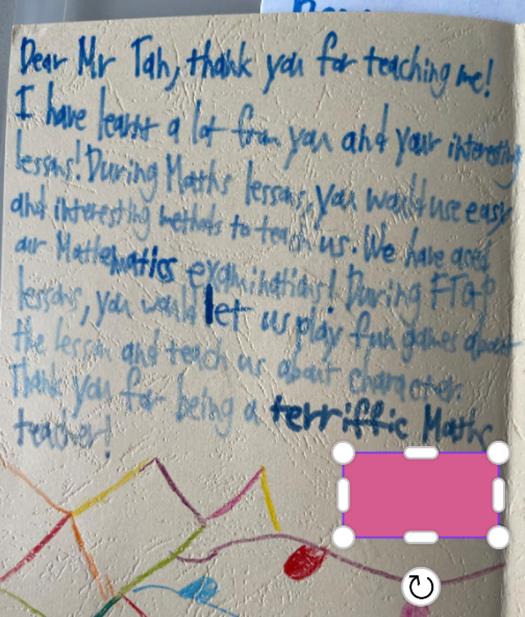 Dear Mr Tah, thank you for teaching me!
I have learnt a lot from you and your interesting
lessons! During Maths lessons, you would use easy
and interesting methods to teach us. We have aced
our Mathematics examinations! During FTGP
lessons, you would let us play fun games about
the lesson and teach us about character.
Thank you for being a terriffic Maths
teacher!